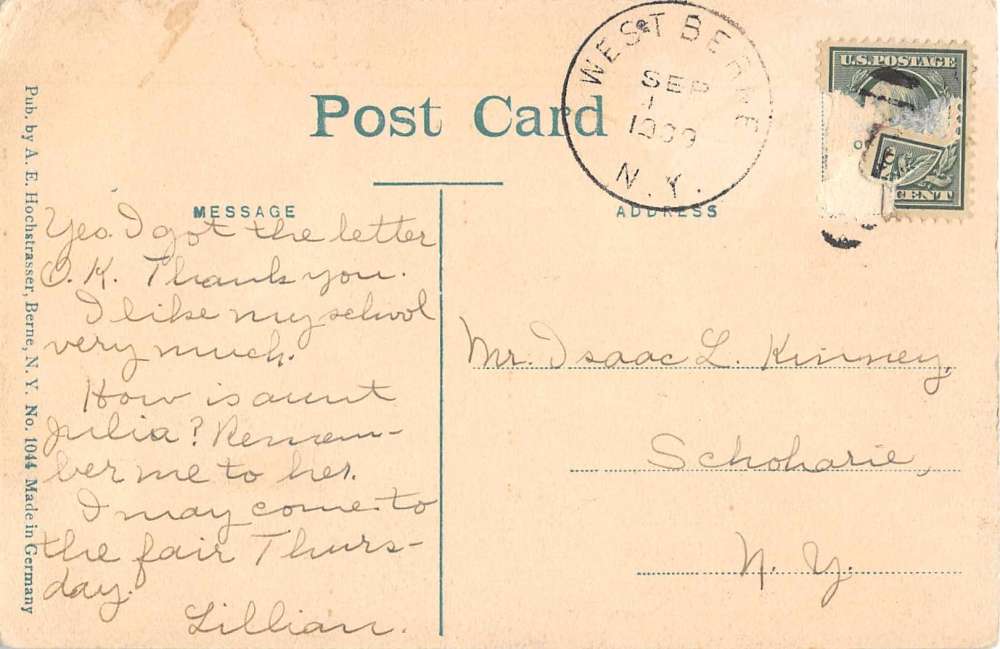 Post Card
WEST BERNE
SEP
1
1909
N.Y.
U.S. POSTAGE
CENT
MESSAGE
ADDRESS
Yes. I got the letter
O. K. Thank you.
I like my school
very much.
How is aunt
Julia? Remem-
ber me to her.
I may come to
the fair Thurs-
day.
Lillian.
Mr. Isaac L. Kinney,
Schoharie,
N. Y.
Pub. by A. E. Hochstrasser, Berne, N. Y. No. 1044 Made in Germany